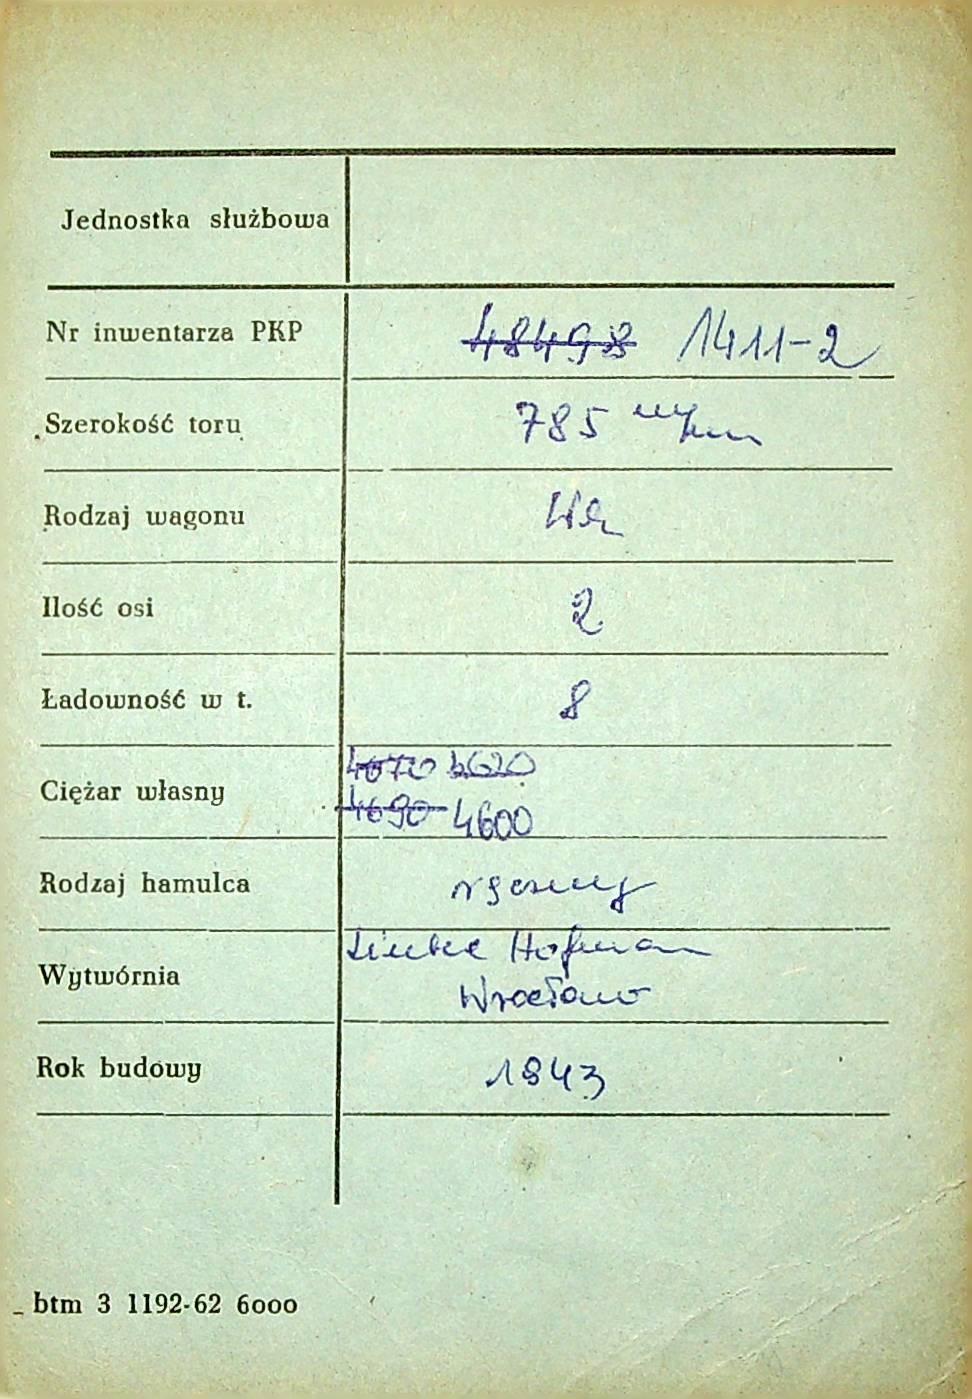 Jednostka służbowa
Nr inwentarza PKP 48498 1411-2
Szerokość toru 785 m/m
Rodzaj wagonu
Ilość osi 2
Ładowność w t. 8
4670 4620
Ciężar własny
4690 4600
Rodzaj hamulca ręczny
Linke Hofman
Wytwórnia
Wrocław
Rok budowy 1943
btm 3 1192-62 6000